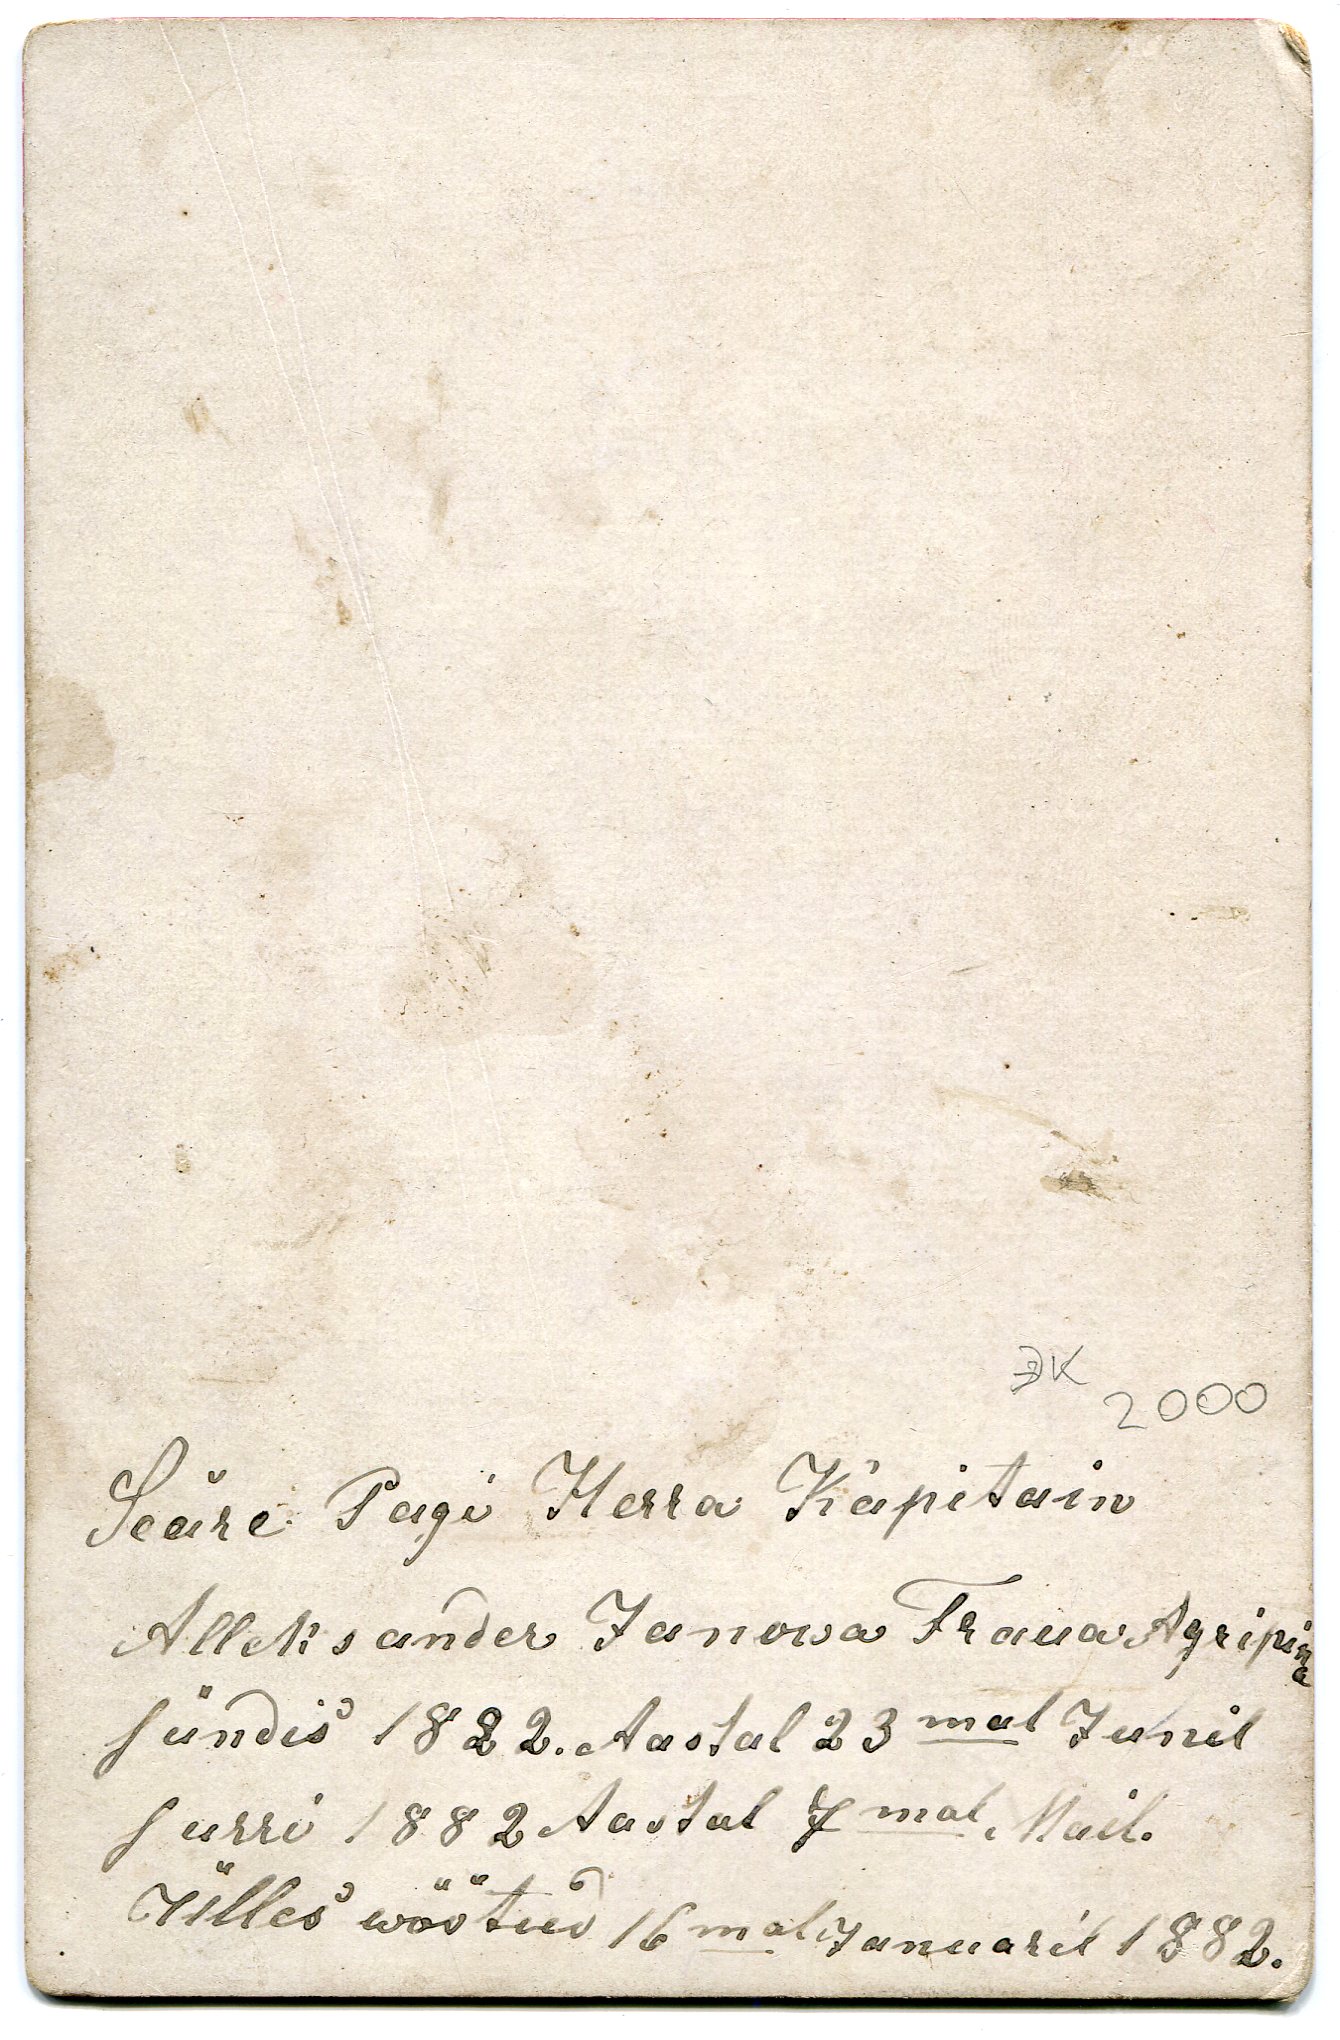 ЭК
2000
Sääre Pagi Herra Käpitain
Alleksander Janowa Fraua Agripina
sündis 1822. Aastal 23 mal Junil
surri 1882 Aastal 7 mal Mail.
Ülles wöötud 16 mal Januaril 1882.